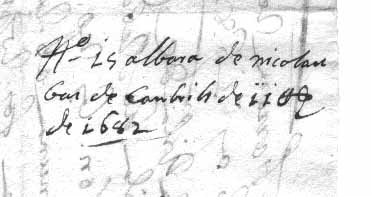 Nº 15 albara de nicolau
bas de Canbrils de ii 
de 1682